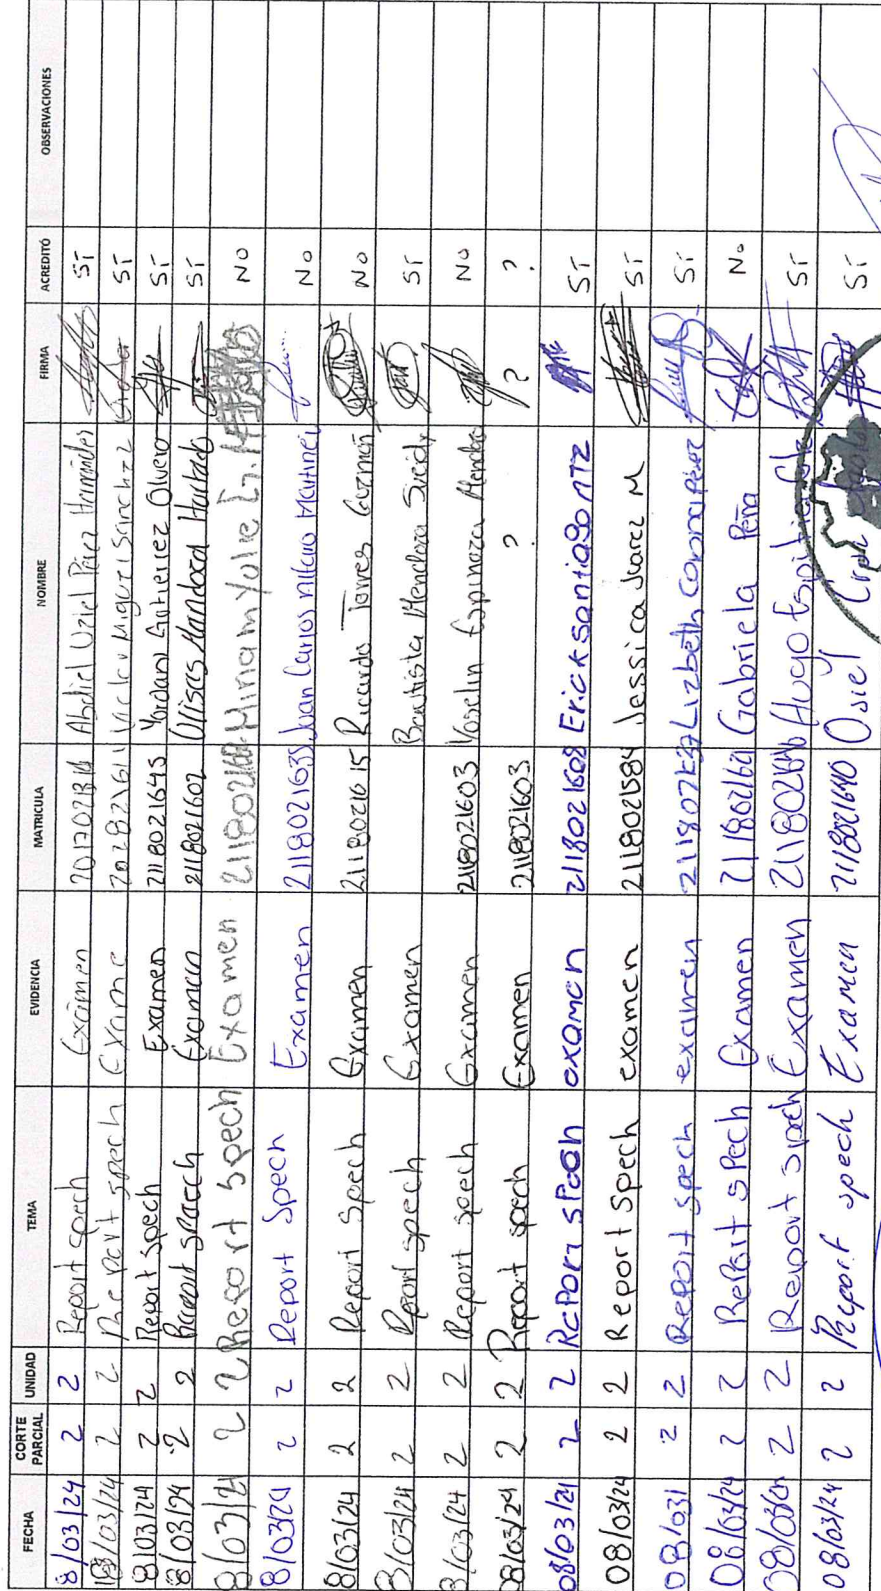 FECHA CORTE PARCIAL UNIDAD TEMA EVIDENCIA MATRICULA NOMBRE FIRMA ACREDITÓ OBSERVACIONES
8/03/24 2 2 Report spech Examen Abdiel Uziel Pérez Hernández SI
8/03/24 2 2 Report spech Exame Miguel Sanchez SI
8/03/24 2 2 Report spech Examen 2118021645 Yordani Gutierrez Olvera SI
8/03/24 2 2 Examen 2118021602 Ulises Mandoza Hurtado SI
8/03/24 2 2 Report Spech Examen Miriam Yulie NO
8/03/24 2 2 Report Spech Examen 2118021635 Juan Carlos Martinez NO
8/03/24 2 2 Report Spech Examen 2118021615 Ricardo Torres Guzmán NO
8/03/24 2 2 Report spech Examen Bautista Mendoza SI
8/03/24 2 2 Report spech Examen 2118021603 Yoselin Espinoza NO
08/03/24 2 2 Report spech Examen 2118021603 ? ? ?
08/03/24 2 2 Report spech examen 2118021608 Erick santiago MTZ SI
08/03/24 2 2 Report Spech examen 2118021584 Jessica Juarez M SI
08/03/ 2 2 Report spech examen Lizbeth SI
08/03/24 2 2 Report spech Examen Gabriela Peña No
2 2 Report spech Examen Hugo SI
08/03/24 2 2 Report spech Examen 2118021640 Osiel SI